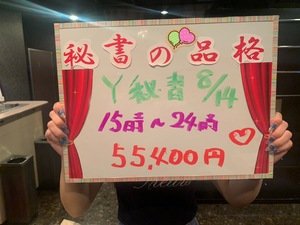 秘書の品格
Y秘書 8/14
15時~24時
55,400円